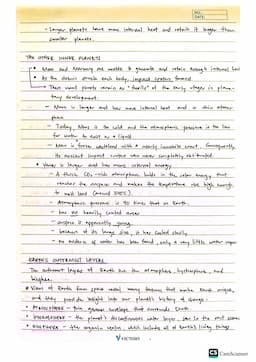 NO.:
DATE:
- Larger planets have more internal heat and retain it longer than
smaller planets.
THE OTHER INNER PLANETS
• Moon and Mercury are unable to generate and retain enough internal heat
• As the debris struck each body, impact craters formed
• These small planets remain as "fossils" of the early stages in plane-
tary development.
- Mars is larger and has more internal heat and a thin atmos-
phere
- Today, Mars is too cold and the atmospheric pressure is too low
for water to exist as a liquid
- Mars is further
its ancient impact craters were never completely obliterated.
• Venus is larger and has more internal energy
- A thick, CO₂-rich atmosphere holds in the solar energy that
reaches the surface and makes the temperature high enough
to melt lead
- Atmospheric pressure is 90 times that on Earth.
- has no heavily cratered areas
- surface is apparently young
- because of its large size, it has cooled slowly
- no evidence of water has been found, only a very little water vapor
EARTH'S OUTERMOST LAYERS
The outermost layers of Earth are the atmosphere, hydrosphere, and
biosphere.
• Views of Earth from space reveal many features that make Earth unique,
and they provide insight into our planet's history of change.
• ATMOSPHERE - thin gaseous envelope that surrounds Earth
• HYDROSPHERE - the planet's discontinuous water layer
• BIOSPHERE - the organic realm, which includes all of Earth's living things
VICTORY
CS CamScanner